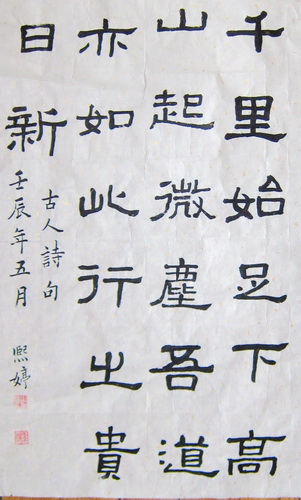 千里始足下高
山起微塵吾道
亦如此行之貴
日新
古人詩句
壬辰年五月 熙婷